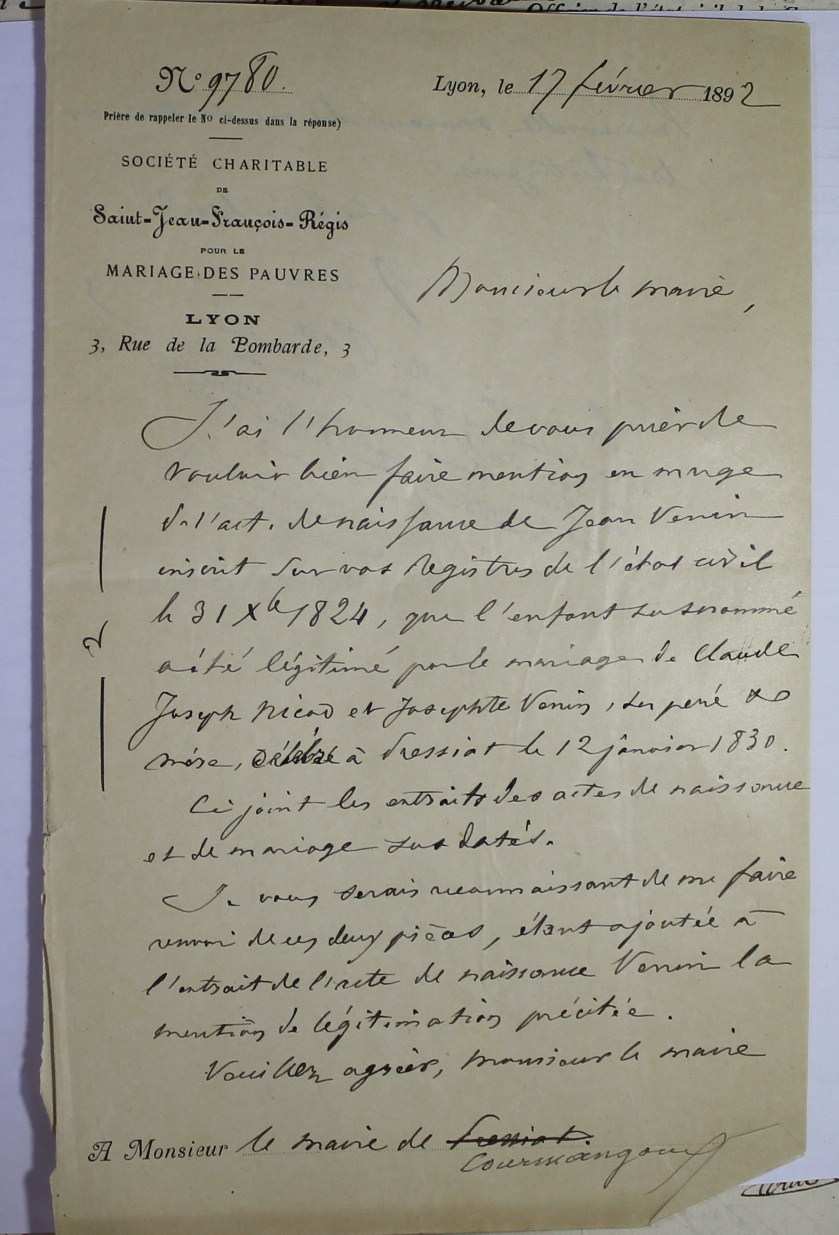 N° 9780.
Lyon, le 17 février 1892
Prière de rappeler le No ci-dessus dans la réponse)
SOCIÉTÉ CHARITABLE
DE
Saint-Jean-François-Régis
POUR LE
MARIAGE DES PAUVRES
LYON
3, Rue de la Bombarde, 3
Monsieur le maire,
J'ai l'honneur de vous prier de
vouloir bien faire mention en marge
de l'acte de naissance de Jean Venin
inscrit sur vos registres de l'état civil
le 31 Xbe 1824, que l'enfant susnommé
a été légitimé par le mariage de Claude
Joseph Nicod et Josephte Venin, ses père et
mère, célébré à Dressiat le 12 janvier 1830.
2
Ci joint les extraits des actes de naissance
et de mariage sus datés.
Je vous serais reconnaissant de me faire
renvoi de ces deux pièces, étant ajoutée à
l'extrait de l'acte de naissance Venin la
mention de légitimation précitée.
Veuillez agréer, monsieur le maire
A Monsieur le maire de Dressiat.
Courmangoux